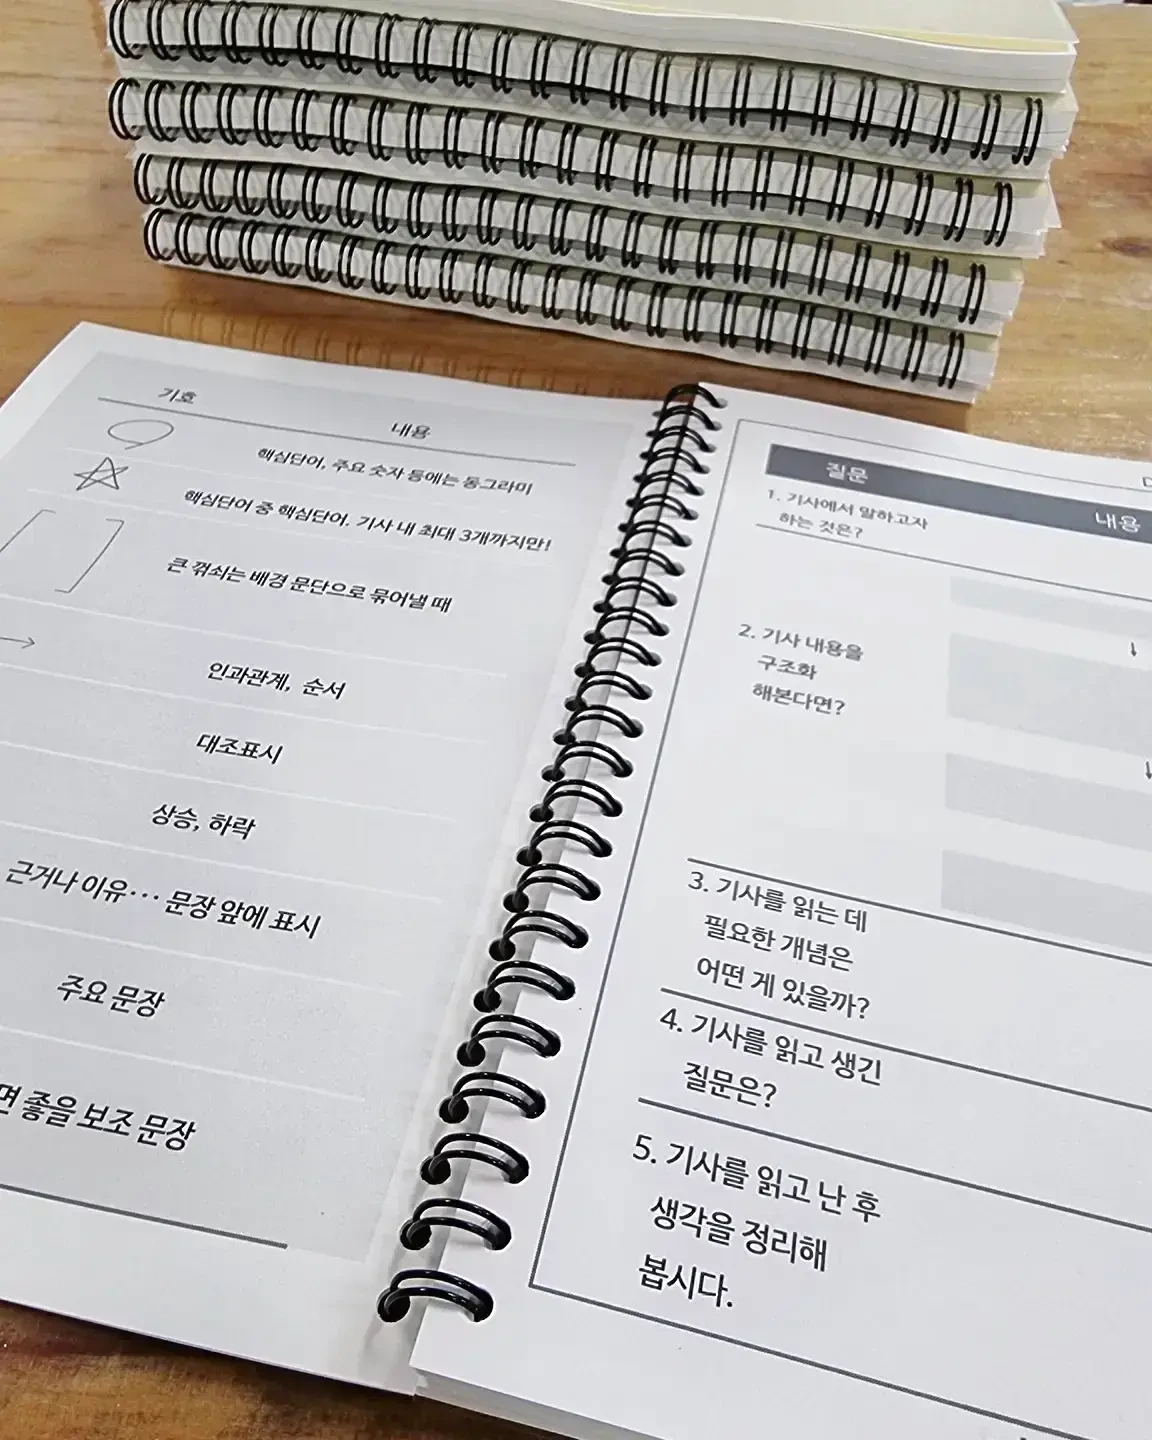 기호
내용
핵심단어, 주요 숫자 등에는 동그라미
핵심단어 중 핵심단어. 기사 내 최대 3개까지만!
큰 꺾쇠는 배경 문단으로 묶어낼 때
인과관계, 순서
대조표시
상승, 하락
근거나 이유… 문장 앞에 표시
주요 문장
좋을 보조 문장
질문
내용
1. 기사에서 말하고자
하는 것은?
2. 기사 내용을
구조화
해본다면?
3. 기사를 읽는 데
필요한 개념은
어떤 게 있을까?
4. 기사를 읽고 생긴
질문은?
5. 기사를 읽고 난 후
생각을 정리해
봅시다.